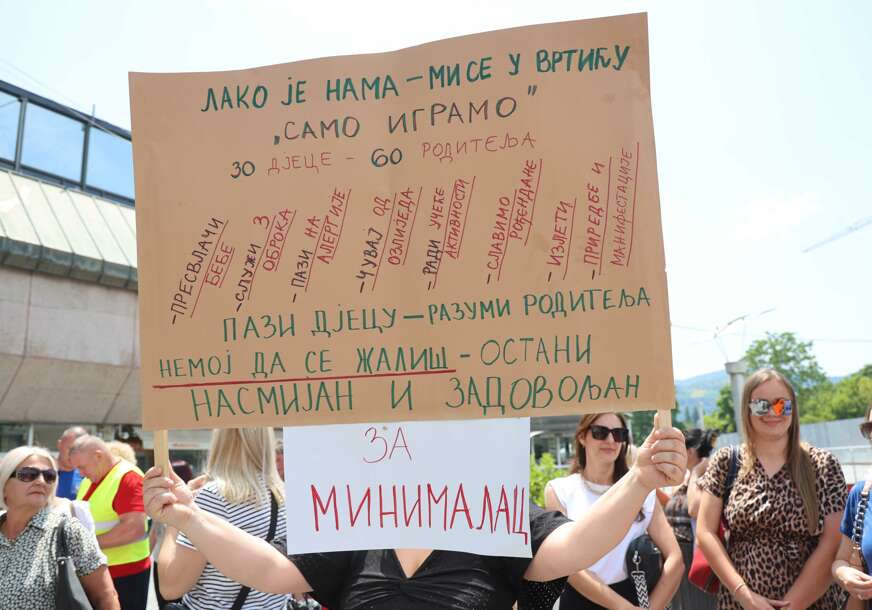 ЛАКО ЈЕ НАМА – МИ СЕ У ВРТИЋУ
„САМО ИГРАМО"
30 ДЈЕЦЕ – 60 РОДИТЕЉА
-ПРЕСВЛАЧИ
БЕБЕ
-СЛУЖИ 3
ОБРОКА
-ПАЗИ НА
АЛЕРГИЈЕ
-ЧУВАЈ ОД
ОЗЛИЈЕДА
-РАДИ УЧЕЋЕ
АКТИВНОСТИ
-СЛАВИМО
РОЂЕНДАНЕ
-ИЗЛЕТИ
-ПРИРЕДБЕ И
МАНИФЕСТАЦИЈЕ
ПАЗИ ДЈЕЦУ – РАЗУМИ РОДИТЕЉА
НЕМОЈ ДА СЕ ЖАЛИШ – ОСТАНИ
НАСМИЈАН И ЗАДОВОЉАН
ЗА
МИНИМАЛАЦ